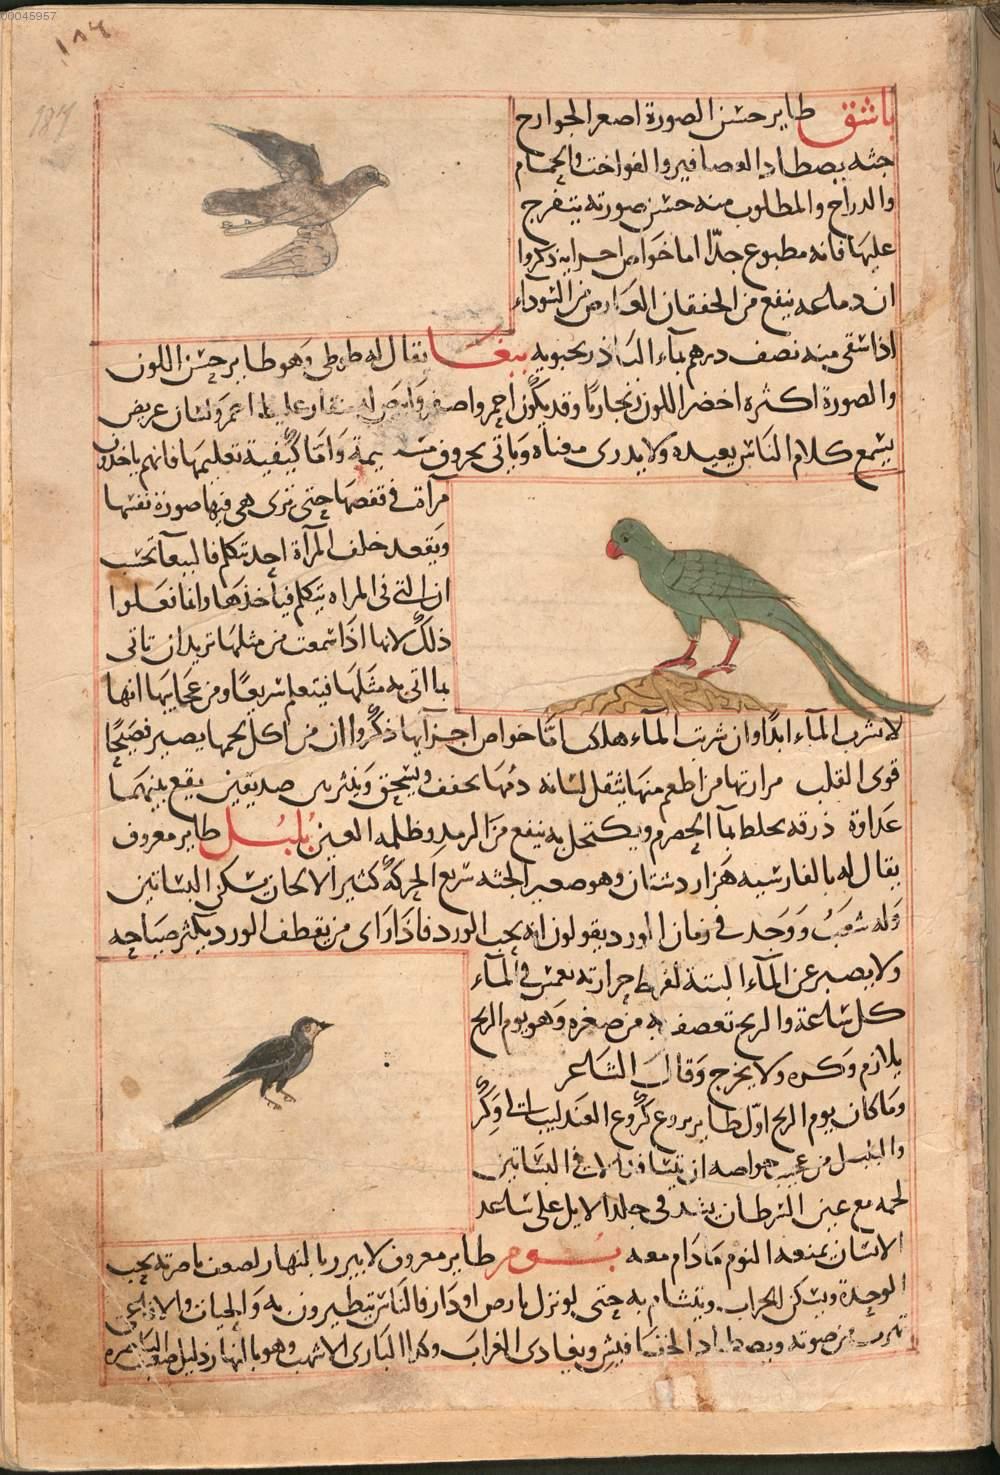 00045957
١٨٦
187
باشق طاير حسن الصورة اصغر الجوارح
جثه يصطاد العصافير والفواخت والحمام
والدراج والمطلوب منه حسن صورته يتفرج
عليها فانه مطبوع جدا اما خواص اجزايه ذكروا
ان دماغه ينفع من الخفقان العارض من السوداء
اذا سقى منه نصف درهم بماء الباذرنجبويه ببغا يقال له طوطى وهو طاير حسن اللون
والصورة اكثره اخضر اللون زنجاريا وقد يكون احمر واصفر وابيض له منقار غليظ احمر ولسان عريض
يسمع كلام الناس يعيده ولا يدرى معناه وياتى بحروف مستقيمة واما كيفية تعليمها فانهم ياخذون
مرآة فى قفصها حتى ترى هى فيها صورة نفسها
ويقعد خلف المرآة احد يتكلم فالببغا تحسب
ان التى فى المراه يتكلم فياخذها وانما فعلوا
ذلك لانها اذا سمعت من مثلها تريد ان تاتى
بما اتى به مثلها فيتعلم سريعا ومن عجايبها انها
لا تشرب المآء ابدا وان شربت المآء هلكت اما خواص اجزآيها ذكروا ان من اكل لحمها يصير فصيحا
قوى القلب مرارتها من اطعم منها يثقل لسانه دمها يجفف ويسحق وينثر بين صديقين يقع بينهما
عداوة ذرقه يخلط بمآ الحصرم ويكتحل به ينفع من الرمد وظلمه العين بلبل طاير معروف
يقال له بالفارسيه هزار دستان وهو صغير الجثه سريع الحركة كثير الالحان يسكن البساتين
وله شغب ووجد فى زمان الورد يقولون انه يحب الورد فاذا راى من يقطف الورد يكثر صياحه
ولا يصبر عن المآء البتة لفرط حرارته يغمس فى المآء
كل ساعة والريح تعصف به من صغره وهو يوم الريح
يلازم وكره ولا يخرج وقال الشاعر
وما كان يوم الريح اول طاير يروع كروع العندليب الى وكر
والبلبل من عجيب خواصه ان لا فى البساتين
لحمه مع عين السرطان يشد فى جلد الايل على ساعد
الانسان يمنعه النوم مادام معه بوم طاير معروف لا يبرز بالنهار لضعف باصرته يحب
الوحدة ويسكن الخراب ويتشام به حتى لو نزل بارض او دار فالناس يتطيرون به والحيات والافاعى
تهرب من صوته ويصطاد الخنافيس ويعادى الغراب وكذا البازى الاشهب وهو بالنهار ذليل ضعيف الباصره